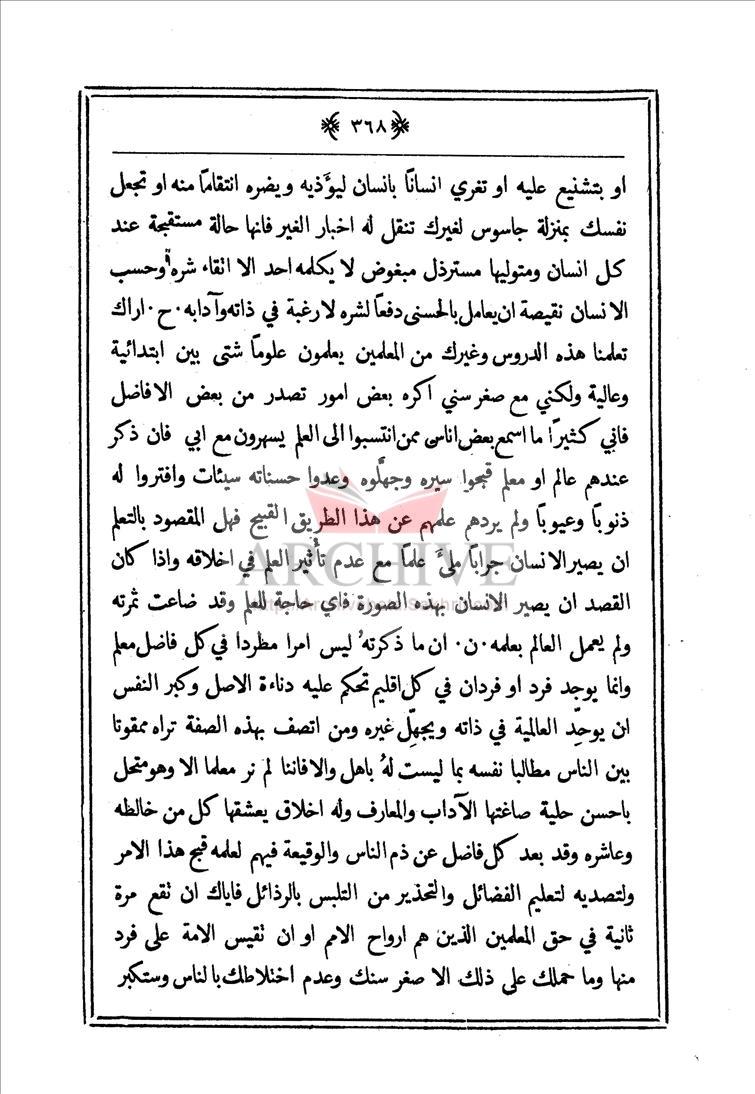 ٣٦٨
او بتشنيع عليه او تغري انسانًا بانسان ليؤذيه ويضره انتقامًا منه او تجعل
نفسك بمنزلة جاسوس لغيرك تنقل له اخبار الغير فانها حالة مستقبحة عند
كل انسان ومتوليها مسترذل مبغوض لا يكلمه احد الا اتقاء شره وحسب
الانسان نقيصة ان يعامل بالحسنى دفعًا لشره لا رغبة في ذاته وآدابه ٠ ح ٠ اراك
تعلمنا هذه الدروس وغيرك من المعلمين يعلمون علومًا شتى بين ابتدائية
وعالية ولكني مع صغر سني اكره بعض امور تصدر من بعض الافاضل
فاني كثيرًا ما اسمع بعض اناس ممن انتسبوا الى العلم يسهرون مع ابي فان ذكر
عندهم عالم او معلم قبحوا سيره وجهلوه وعدوا حسناته سيئات وافتروا له
ذنوبًا وعيوبًا ولم يردهم علمهم عن هذا الطريق القبيح فهل المقصود بالتعلم
ان يصير الانسان جرابًا ملئ علمًا مع عدم تأثير العلم في اخلاقه واذا كان
القصد ان يصير الانسان بهذه الصورة فاي حاجة للعلم وقد ضاعت ثمرته
ولم يعمل العالم بعلمه ٠ ن ٠ ان ما ذكرته ليس امرا مطردا في كل فاضل معلم
وانما يوجد فرد او فردان في كل اقليم تحكم عليه دناءة الاصل وكبر النفس
ان يوحِّد العالمية في ذاته ويجهِّل غيره ومن اتصف بهذه الصفة تراه ممقوتا
بين الناس مطالبا نفسه بما ليست لهُ باهل والا فاننا لم نر معلما الا وهو متحل
باحسن حلية صاغتها الآداب والمعارف وله اخلاق يعشقها كل من خالطه
وعاشره وقد بعد كل فاضل عن ذم الناس والوقيعة فيهم لعلمه قبح هذا الامر
ولتصديه لتعليم الفضائل والتحذير من التلبس بالرذائل فاياك ان تقع مرة
ثانية في حق المعلمين الذين هم ارواح الامم او ان تقيس الامة على فرد
منها وما حملك على ذلك الا صغر سنك وعدم اختلاطك بالناس وستكبر
ARCHIVE